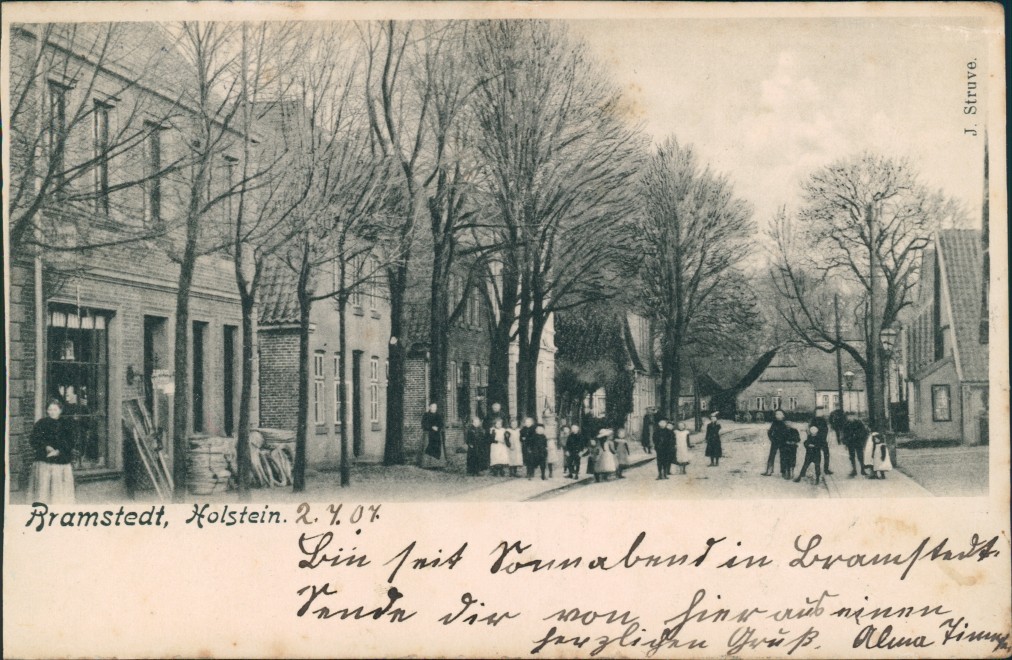 J. Struve.
Bramstedt, Holstein. 2.7.07.
Bin seit Sonnabend in Bramstedt.
Sende dir von hier aus einen
herzlichen Gruß. Alma